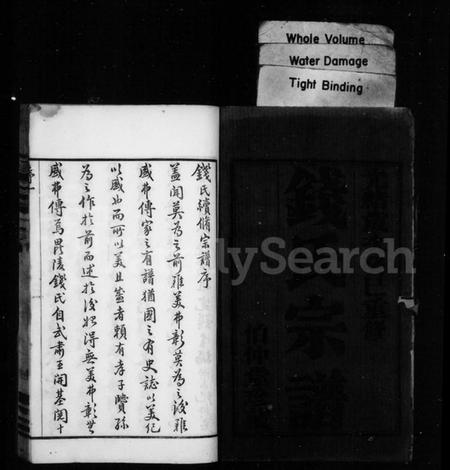 Whole Volume
Water Damage
Tight Binding
錢氏續脩宗譜序
蓋聞莫為之前雖美弗彰莫為之後雖
盛弗傳家之有譜猶國之有史誌以美紀
以盛也而所以美且盛者賴有孝子賢孫
為之作於前而述於後始得無美弗彰無
盛弗傳焉毘陵錢氏自武肅王開基閱十
錢氏宗譜
FamilySearch